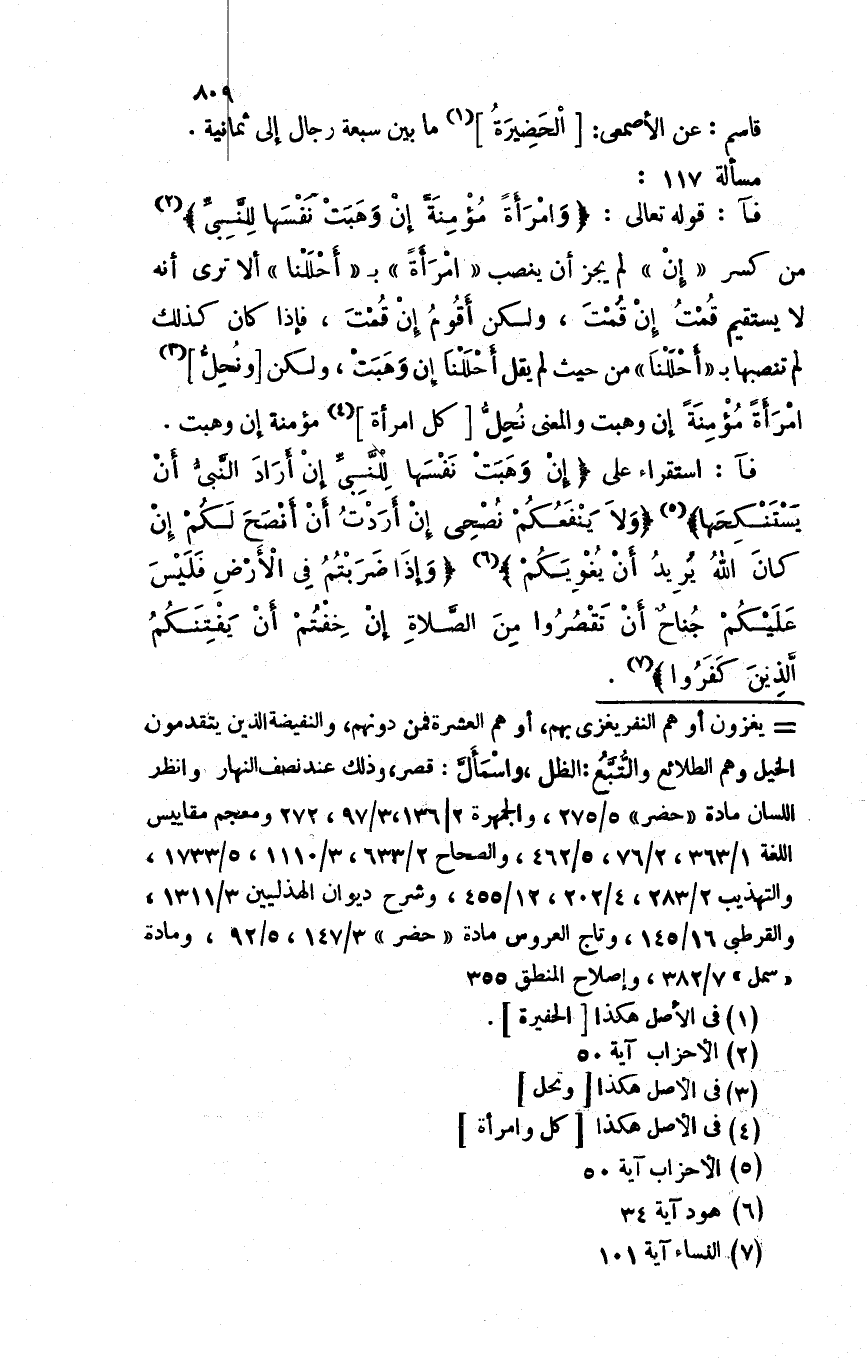 ٨٠٩
قاسم : عن الأصمعى: [ الْحَضِيرَةُ ](١) ما بين سبعة رجال إلى ثمانية .
مسألة ١١٧ :
فآ : قوله تعالى : ﴿ وَامْرَأَةً مُؤْمِنَةً إِنْ وَهَبَتْ نَفْسَها لِلنَّبِيِّ ﴾(٢)
من كسر « إِنْ » لم يجز أن ينصب « امْرَأَةً » بـ « أَحْلَلْنا » ألا ترى أنه
لا يستقيم قُمْتُ إِنْ قُمْتَ ، ولكن أَقُومُ إِنْ قُمْتَ ، فإذا كان كذلك
لم تنصبها بـ «أَحْلَلْنَا» من حيث لم يقل أَحْلَلْنَا إن وَهَبَتْ ، ولكن [ونُحِلُّ](٣)
امْرَأَةً مُؤْمِنَةً إن وهبت والمعنى نُحِلُّ [ كل امرأة ](٤) مؤمنة إن وهبت .
فآ : استقراء على ﴿ إِنْ وَهَبَتْ نَفْسَها لِلْنَّبِيِّ إِنْ أَرَادَ النَّبِيُّ أَنْ
يَسْتَنْكِحَها﴾(٥) ﴿وَلاَ يَنْفَعُكُمْ نُصْحِى إِنْ أَرَدْتُ أَنْ أَنْصَحَ لَكُمْ إِنْ
كانَ اللهُ يُرِيدُ أَنْ يُغْوِيَكُمْ ﴾(٦) ﴿ وَإِذَا ضَرَبْتُمُ فِى الْأَرْضِ فَلَيْسَ
عَلَيْكُمْ جُناحٌ أَنْ تَقْصُرُوا مِنَ الصَّلاةِ إِنْ خِفْتُمْ أَنْ يَفْتِنَكُمُ
الَّذِينَ كَفَرُوا ﴾(٧) .
= يغزون أو هم النفر يغزى بهم، أو هم العشرة فمن دونهم، والنفيضة الذين يتقدمون
الخيل وهم الطلائع والتُّبَّعُ : الظل ، واسْمَأَلَّ : قصر، وذلك عند نصف النهار وانظر
اللسان مادة «حضر» ٢٧٥/٥ ، والجمهرة ١٣٦/٢، ٩٧/٣ ، ٢٧٢ ومعجم مقاييس
اللغة ٣٦٣/١ ، ٧٦/٢ ، ٤٦٢/٥ ، والصحاح ٦٣٣/٢ ، ١١١٠/٣ ، ١٧٣٣/٥ ،
والتهذيب ٢٨٣/٢ ، ٢٠٢/٤ ، ٤٥٥/١٢ ، وشرح ديوان الهذليين ١٣١١/٣ ،
والقرطبى ١٤٥/١٦ ، وتاج العروس مادة « حضر » ١٤٧/٣ ، ٩٢/٥ ، ومادة
« سمل » ٣٨٢/٧ ، وإصلاح المنطق ٣٥٥
(١) فى الأصل هكذا [ الحفيرة ] .
(٢) الأحزاب آية ٥٠
(٣) فى الأصل هكذا [ ونحل ]
(٤) فى الأصل هكذا [ كل وامرأة ]
(٥) الأحزاب آية ٥٠
(٦) هود آية ٣٤
(٧) النساء آية ١٠١